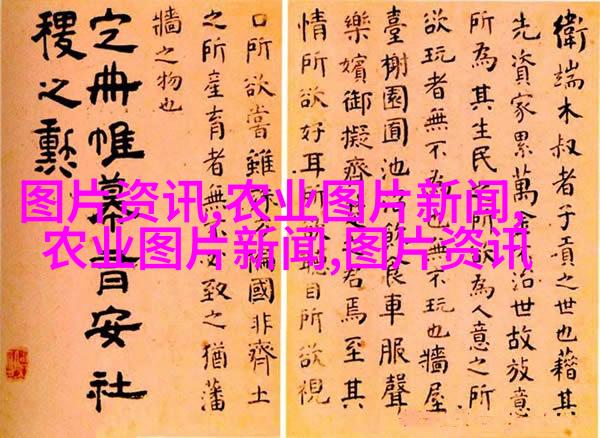 衛端木叔者子貢之世也藉其
先資家累萬金治世故放意
所為其生民所欲為人意之所
欲玩者無不為也無不玩也牆屋
臺榭園囿池沼飲食車服聲
樂嬪御擬齊之君焉至其
情所欲好耳所欲聽目所欲視
口所欲嘗雖殊偏國非齊土
之所產育者無不致之猶藩
牆之物也
定冊帷幕有安社
稷之勳
图片资讯,农业图片新闻,
农业图片新闻,图片资讯